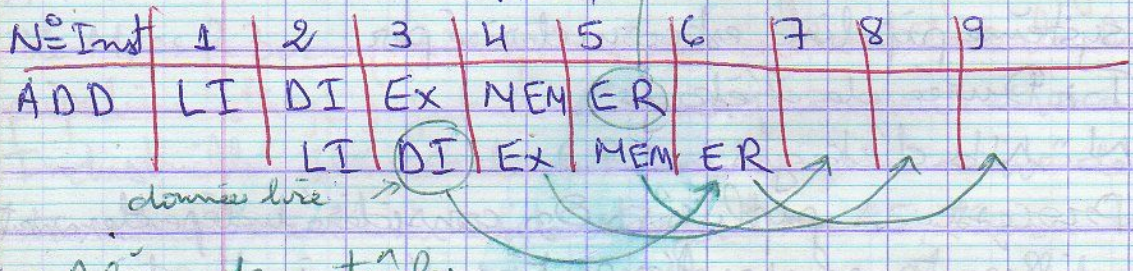 N° Inst 1 2 3 4 5 6 7 8 9
ADD LI DI Ex MEM ER
LI DI Ex MEM ER
donnée lire